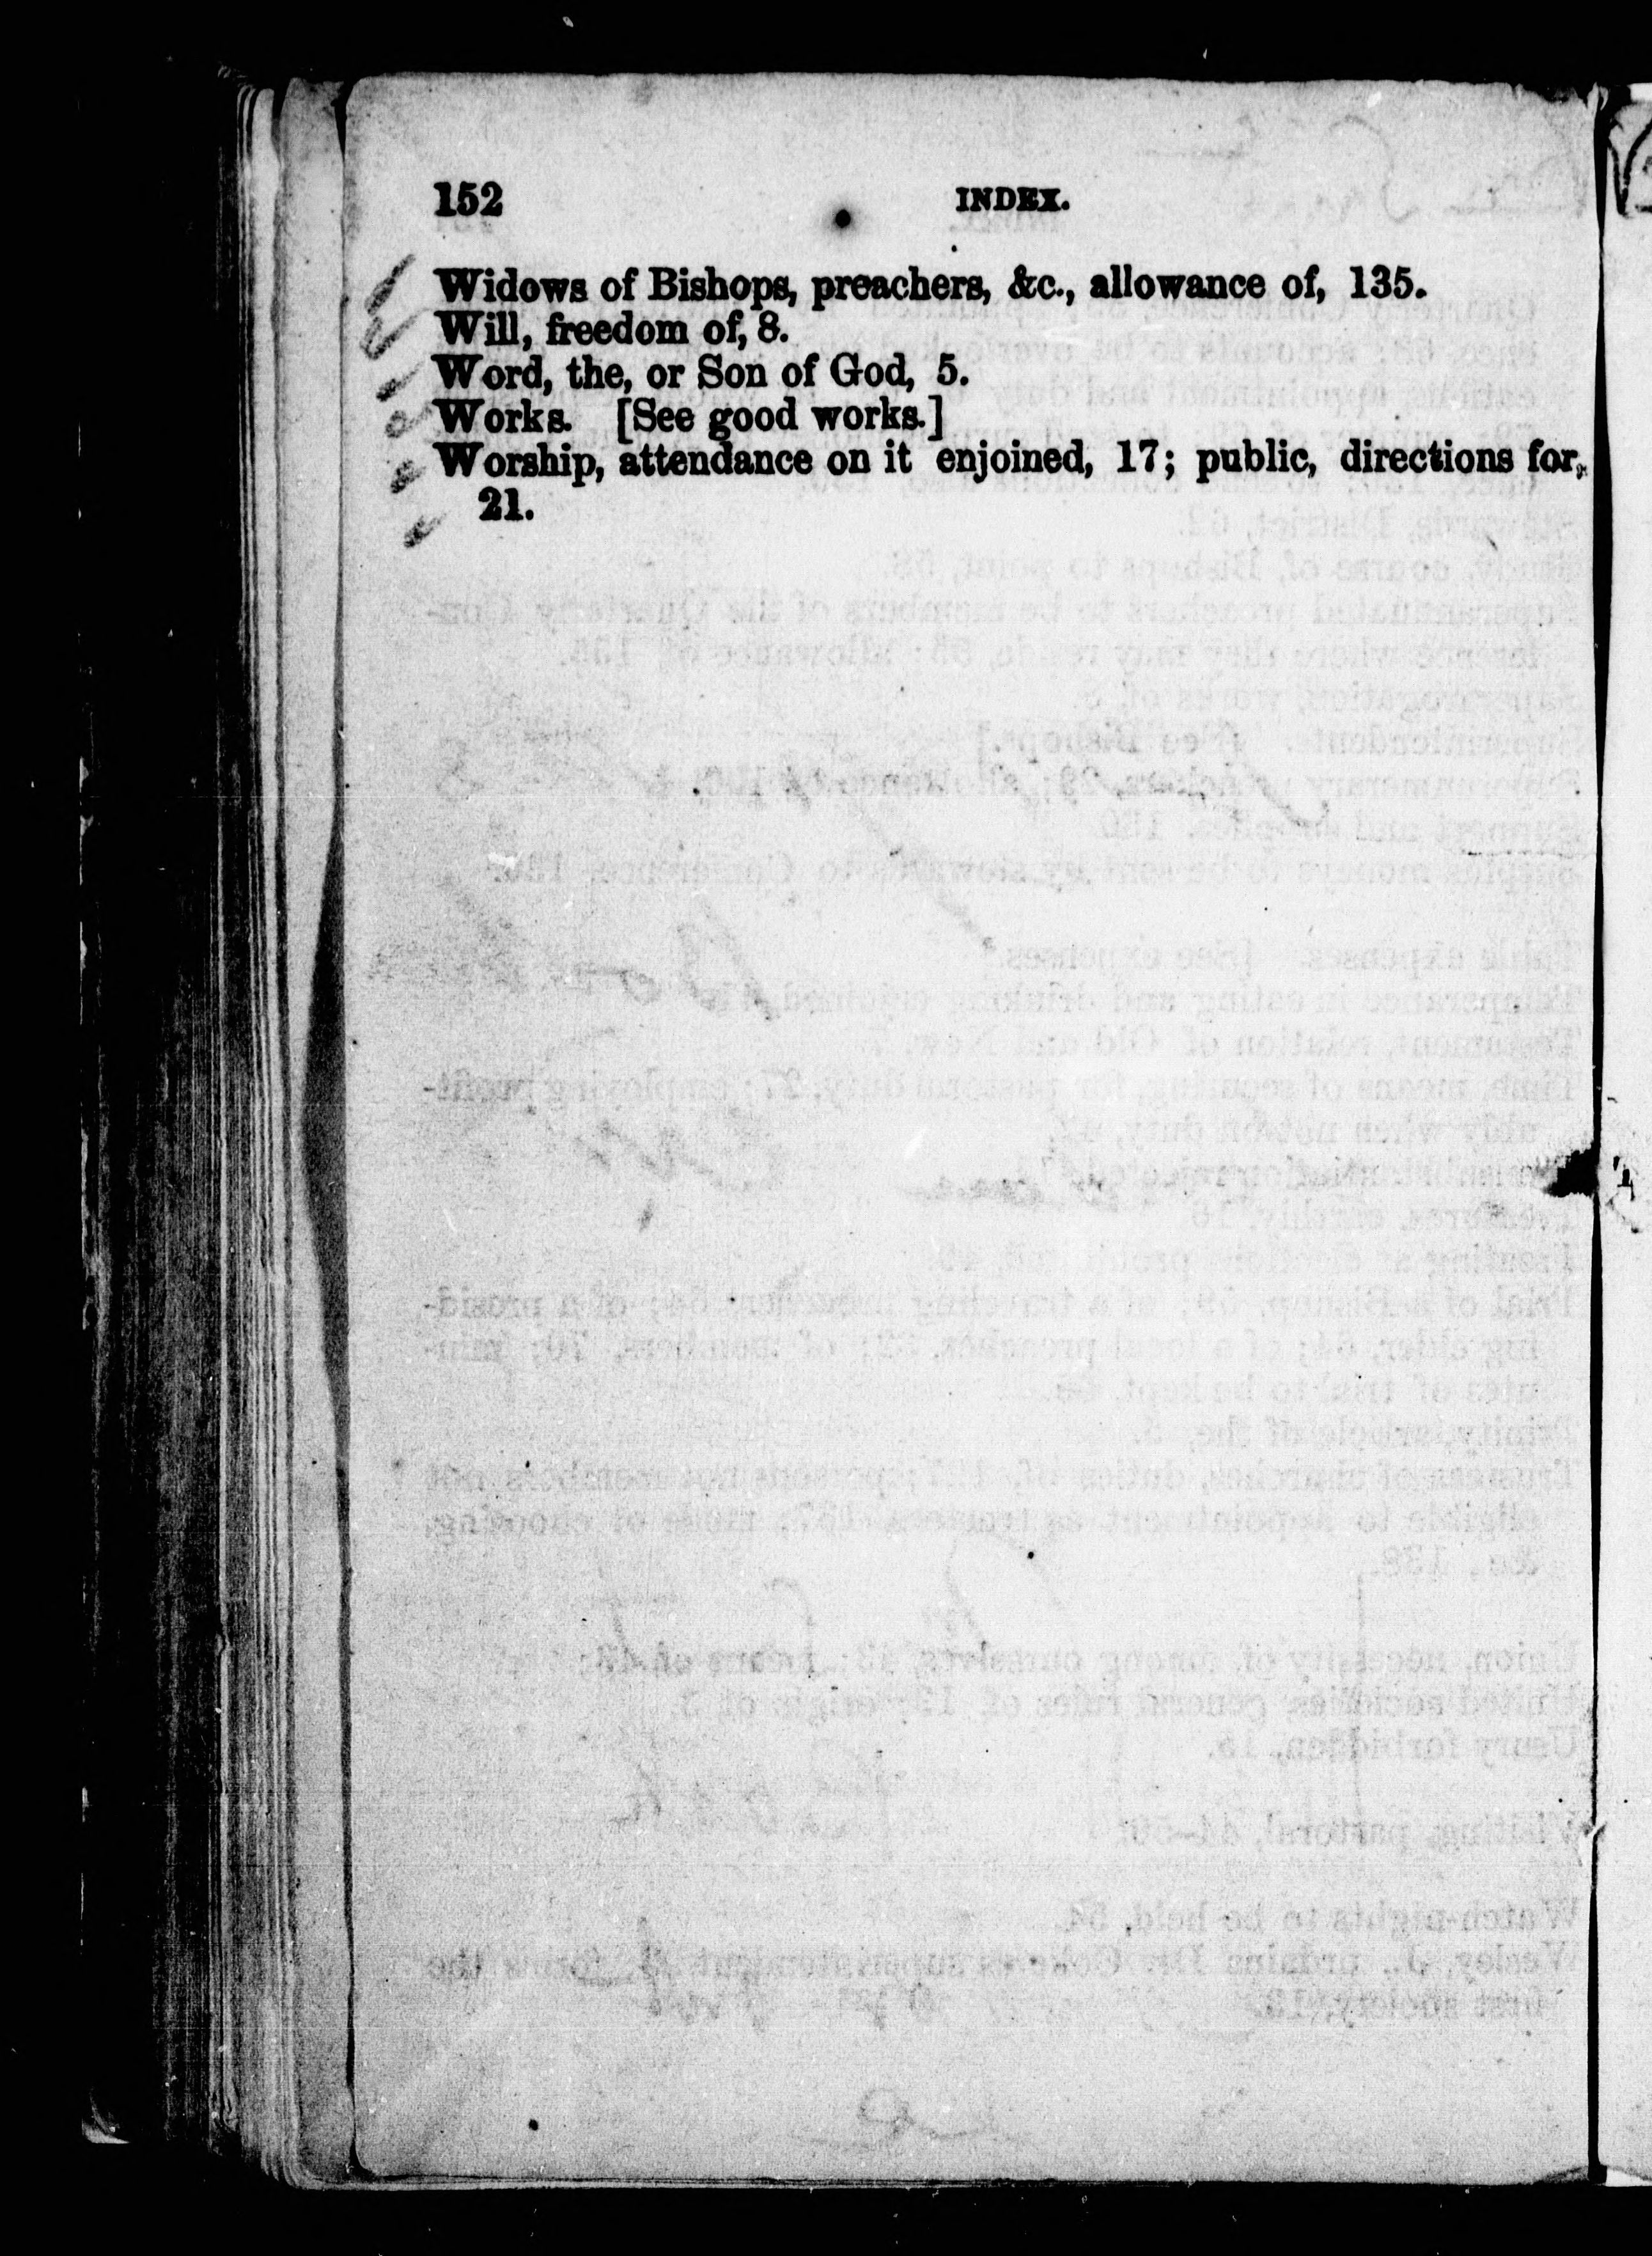 152 INDEX.
Widows of Bishops, preachers, &c., allowance of, 135.
Will, freedom of, 8.
Word, the, or Son of God, 5.
Works. [See good works.]
Worship, attendance on it enjoined, 17; public, directions for,
21.